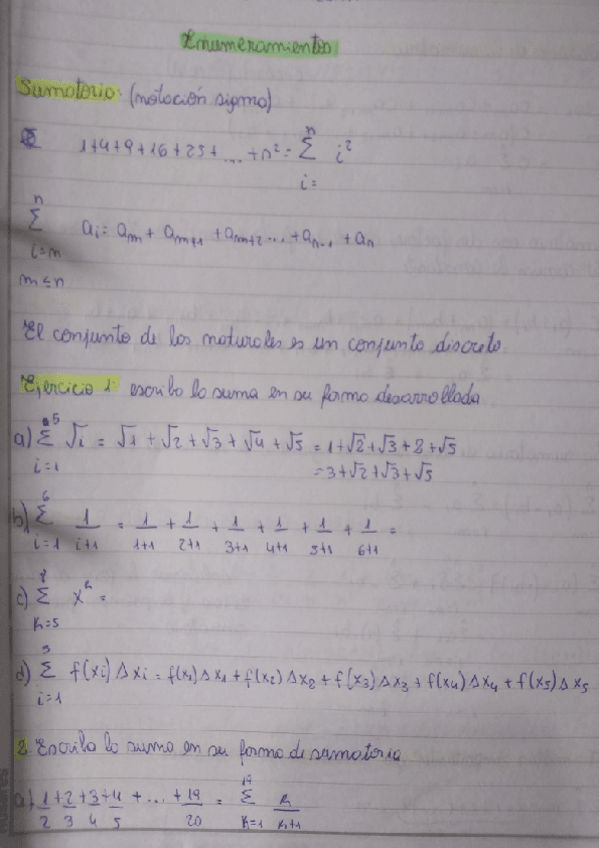 Enumeramientos
Sumatoria: (notación sigma)
1+4+9+16+25+...+n² = Σ i²
n
i=
n
Σ aᵢ = aₘ + aₘ₊₁ + aₘ₊₂ ... + aₙ₋₁ + aₙ
i=m
m≤n
El conjunto de los naturales es un conjunto discreto
Ejercicio 1: escriba la suma en su forma desarrollada
5
a) Σ √i = √1 + √2 + √3 + √4 + √5 = 1+√2+√3+2+√5
i=1 =3+√2+√3+√5
6
b) Σ 1/(i+1) = 1/(1+1) + 1/(2+1) + 1/(3+1) + 1/(4+1) + 1/(5+1) + 1/(6+1) =
i=1
8
c) Σ xᵏ =
k=5
5
d) Σ f(xi) Δxi = f(x₁) Δx₁ + f(x₂) Δx₂ + f(x₃) Δx₃ + f(x₄) Δx₄ + f(x₅) Δx₅
i=1
2. Escriba la suma en su forma de sumatoria
19
a) 1/2 + 2/3 + 3/4 + 4/5 + ... + 19/20 = Σ k/(k+1)
k=1